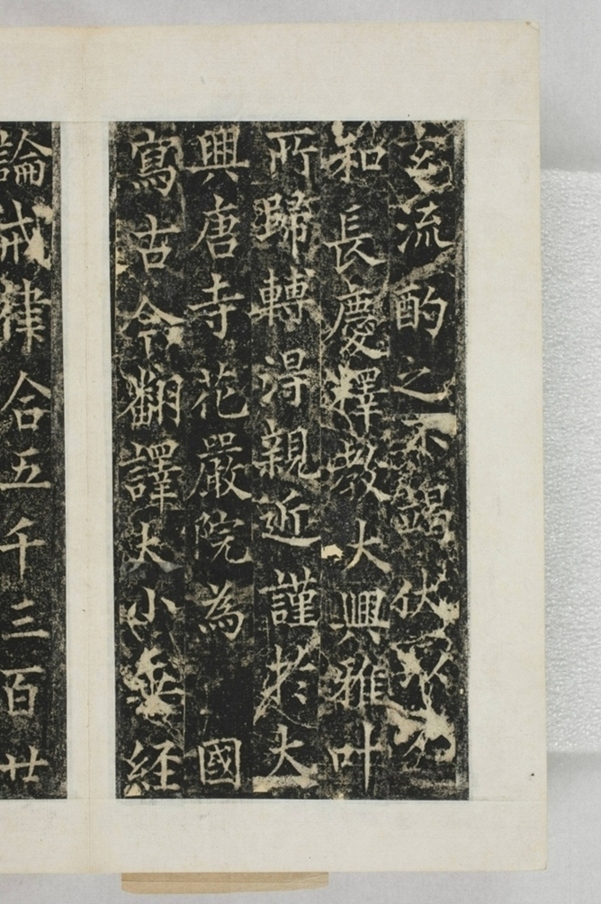 玄流酌之不竭伏以
和長慶釋教大興雅叶
所歸轉淂親近謹於大
興唐寺花嚴院為 國
寫古今翻譯大小乘経
論戒律合五千三百廿